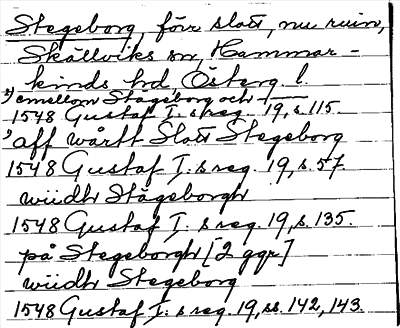 Stegeborg, förr slott, nu ruin,
Skällviks sn, Hammar-
kinds hd, Österg. l.
emellom Stägeborg och
1548 Gustaf I:s reg. 19, s. 115.
aff wårtt Slott Stegeborg
1548 Gustaf I:s reg. 19, s. 57.
wiidh Stägeborgh
1548 Gustaf I:s reg. 19, s. 135.
på Stegeborgh [2 ggr]
wiidh Stegeborg
1548 Gustaf I:s reg. 19, ss. 142, 143.